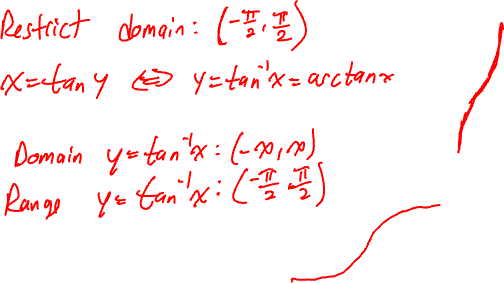 Restrict domain: (-π/2, π/2)
x=tan y ⇔ y=tan⁻¹x=arctanx
Domain y=tan⁻¹x: (-∞,∞)
Range y=tan⁻¹x: (-π/2, π/2)